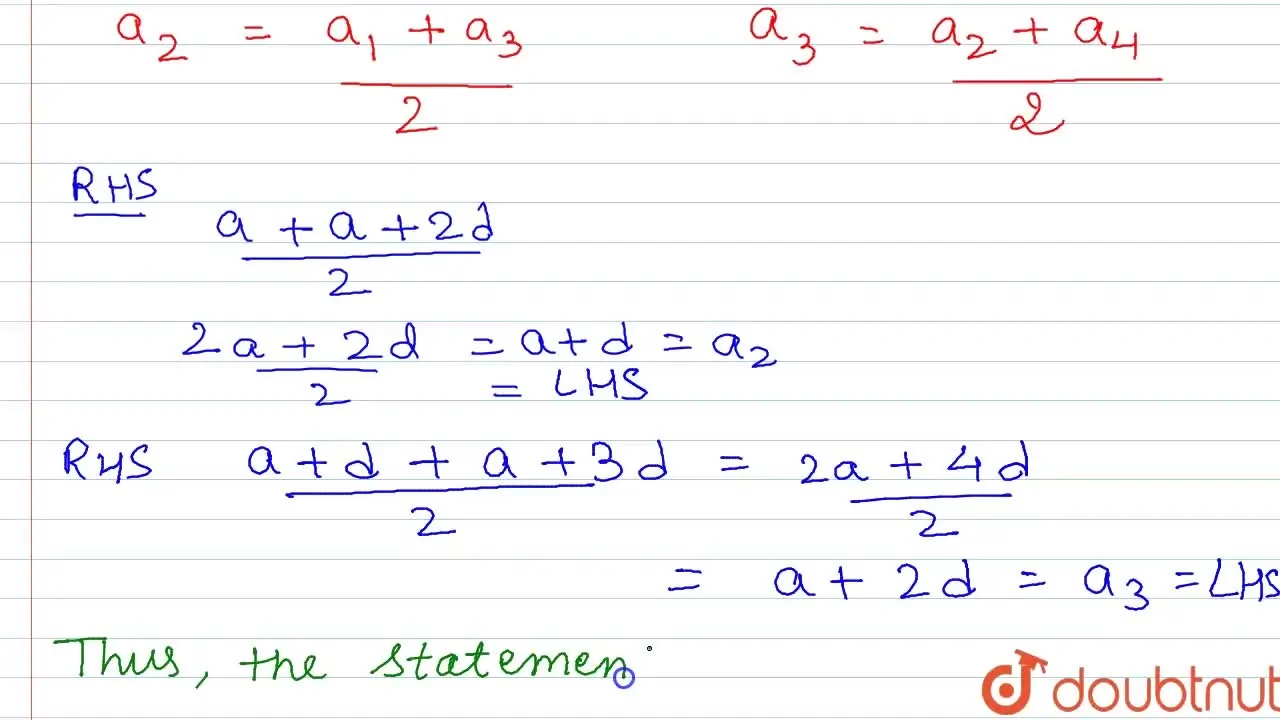 a₂ = (a₁ + a₃)/2    a₃ = (a₂ + a₄)/2
RHS
(a + a + 2d)/2
(2a + 2d)/2 = a + d = a₂
= LHS
RHS (a + d + a + 3d)/2 = (2a + 4d)/2
= a + 2d = a₃ = LHS
Thus, the statemen
doubtnut